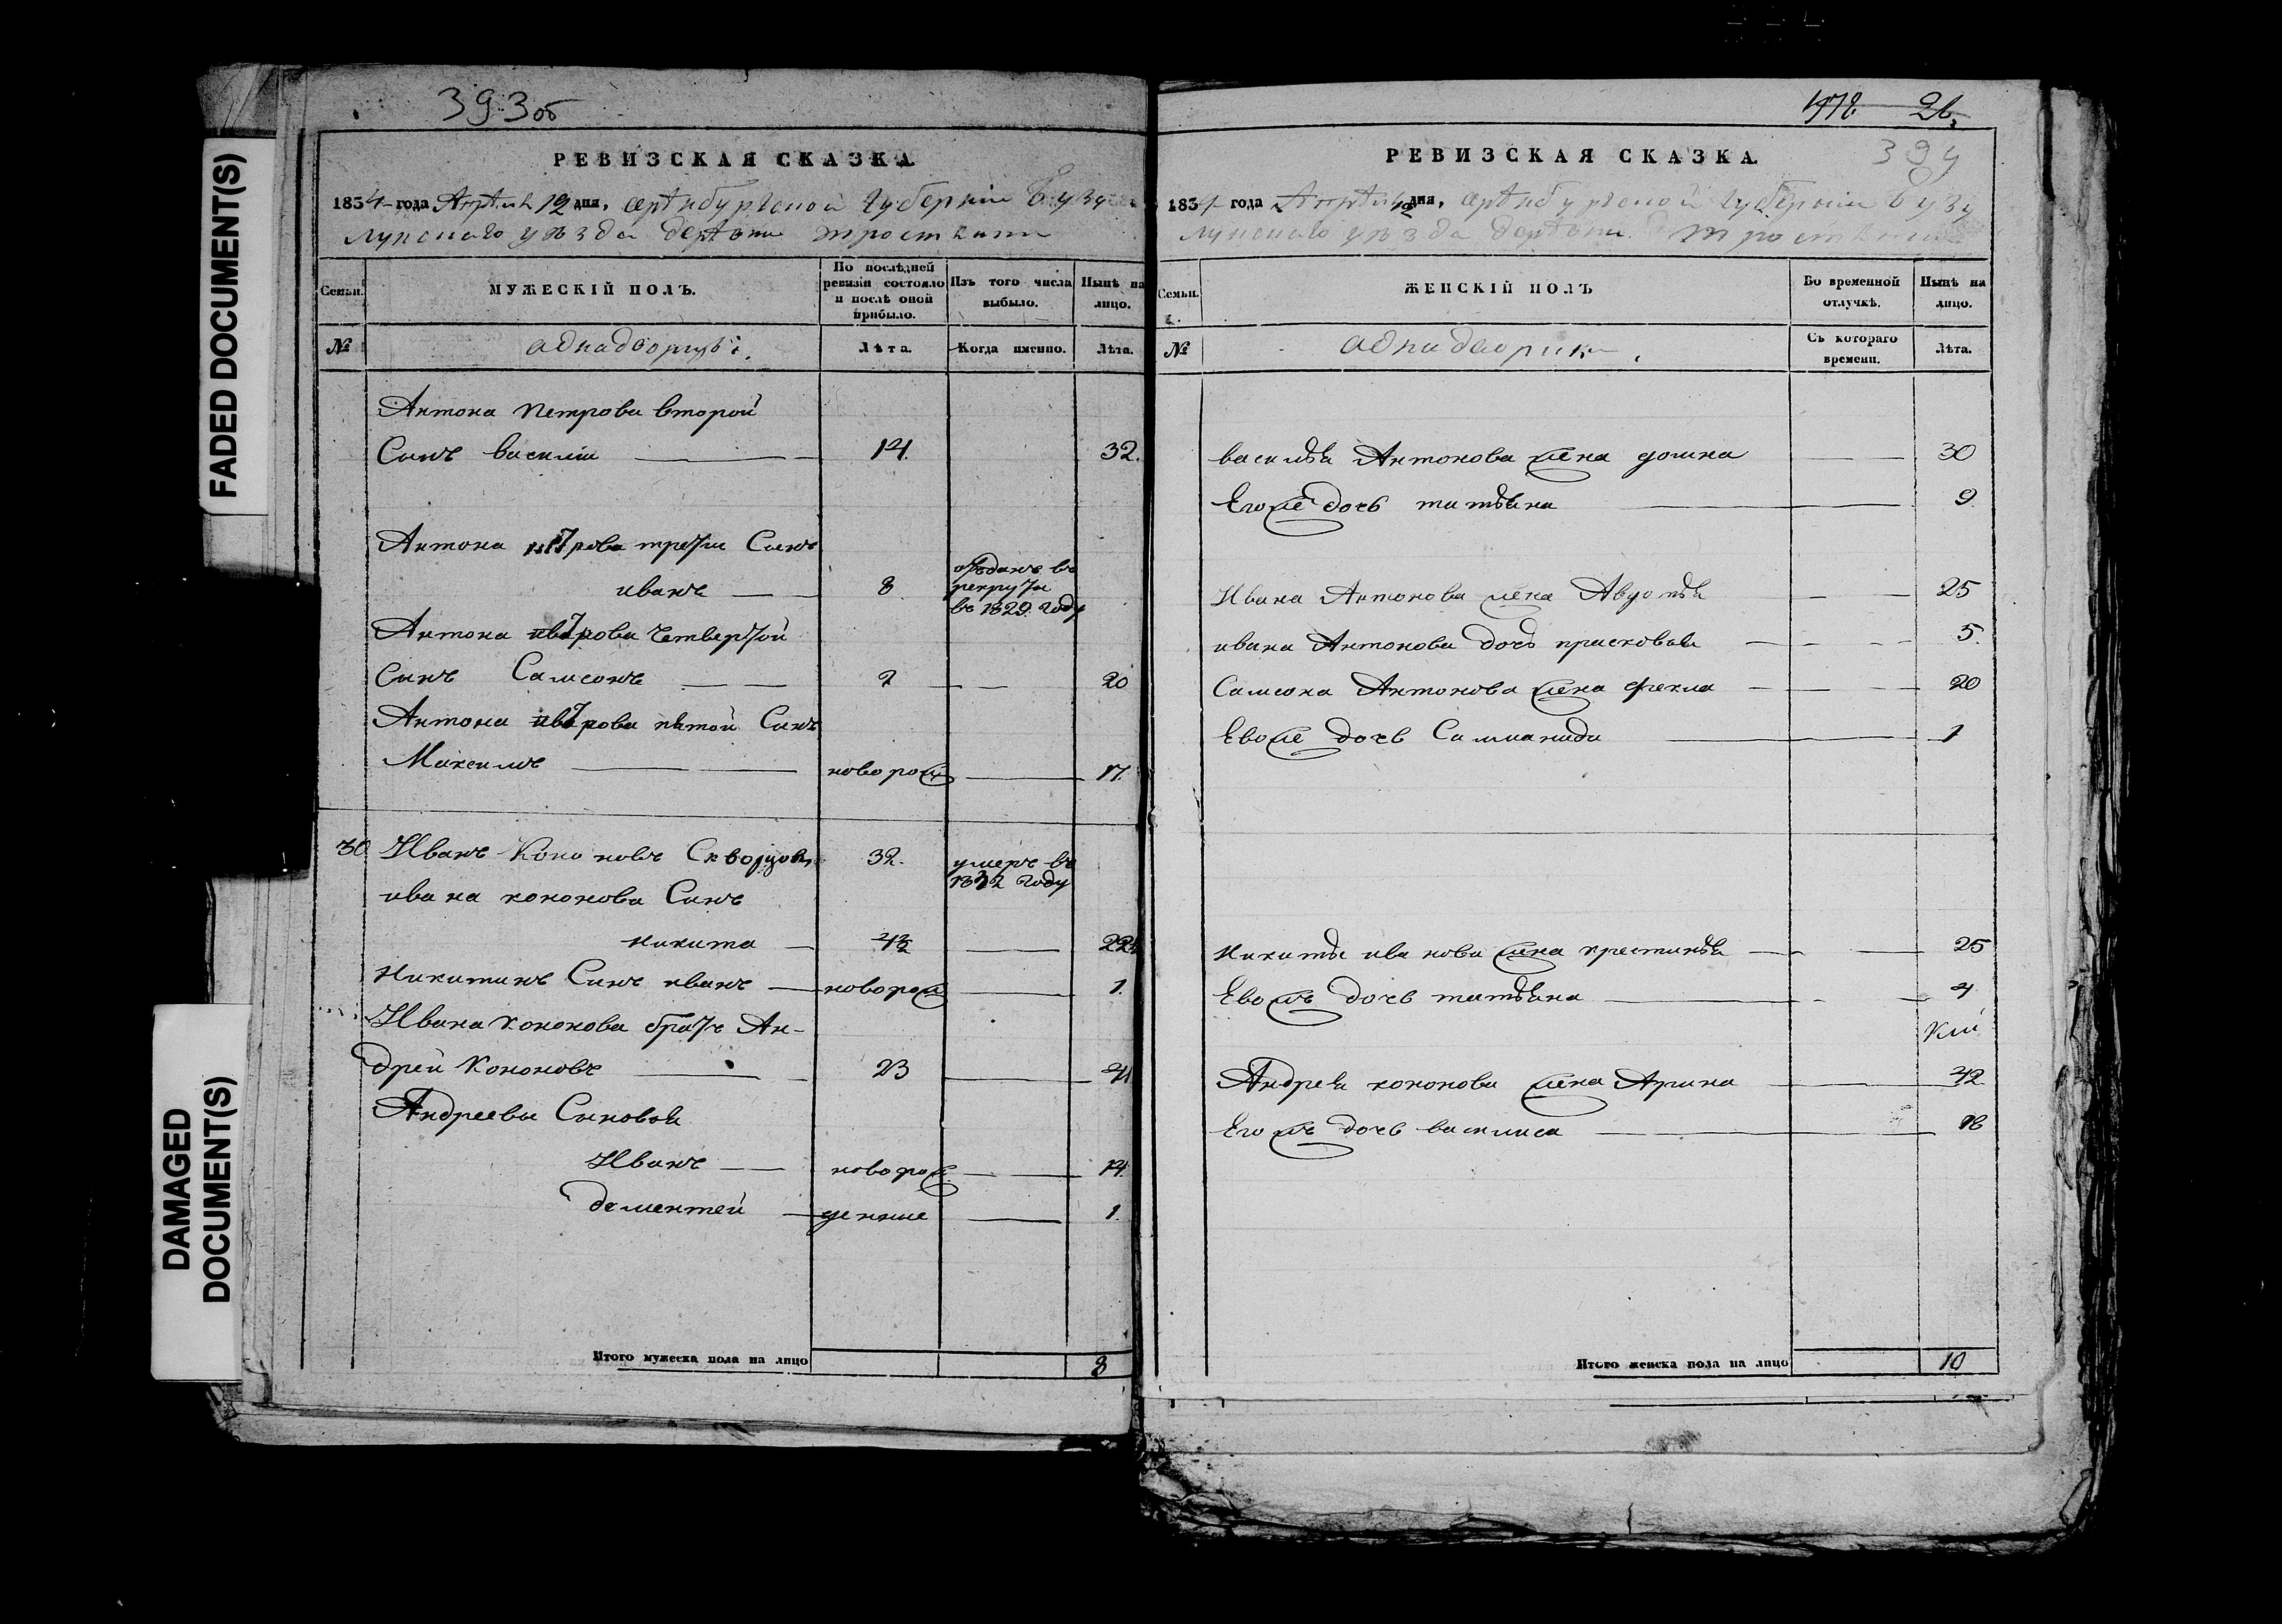 FADED DOCUMENT(S)
DAMAGED
DOCUMENT(S)
393об
РЕВИЗСКАЯ СКАЗКА
1834 года Апрѣля 12 дня, орѣнбургской губерніи бузу
лукскаго уѣзда дерѣвни тростянки
Семьи.
МУЖЕСКІЙ ПОЛЪ.
По послѣдней
ревизіи состояло
и послѣ оной
прибыло.
Изъ того числа
выбыло.
Нынѣ на
лицо.
№
аднадворцы
Лѣта.
Когда именно.
Лѣта.
Антона петрова второй
Сынъ василій 14. 32.
Антона петрова третій Сынъ
иванъ 8
отъданъ въ
рекруты
въ 1829 году
Антона петрова четвертой
Сынъ Самсонъ 2 20
Антона петрова пятой Сынъ
Максимъ новорож 17.
30 Иванъ Кононовъ Скворцовъ 32. умеръ въ
1832 году
ивана кононова Сынъ
никита
Никитинъ Сынъ иванъ новорож 1.
Ивана кононова братъ Ан-
дрей Кононовъ 23 41
Андреевы Сыновья
Иванъ новорож 14.
дементей денные 1.
Итого мужеска пола на лицо 8
26.
394
РЕВИЗСКАЯ СКАЗКА.
1834 года Апрѣля 12 дня, орѣнбургской губерніи бузу
лукскаго уѣзда дерѣвни тростянки
Семьи.
ЖЕНСКІЙ ПОЛЪ
Во временной
отлучкѣ.
Нынѣ на
лицо.
№
аднадворки
Съ котораго
времени.
Лѣта.
василья Антонова жена домна 30
Егоже дочь татьяна 9
Ивана Антонова жена Авдотья 25
ивана Антонова дочь прасковья 5.
Самсона Антонова жена фекла 20
Евоже дочь Саламанида 1
Никиты иванова жена крестинья 25
Евожъ дочь татьяна 4
Андрея кононова жена Арина 42
Егожъ дочь василиса 18
Итого женска пола на лицо 10